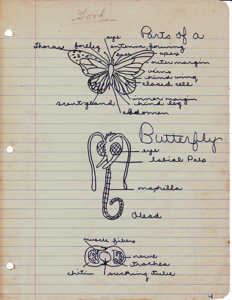 Good
Parts of a
eye
Thorax foreleg antennae forewing
apex
outer margin
veins
hind wing
closed cell
scent gland
inner margin
hind leg
abdomen
Butterfly
eye
labial Palp
maxilla
Head
muscle fibers
nerve
trachea
chitin sucking tube
4